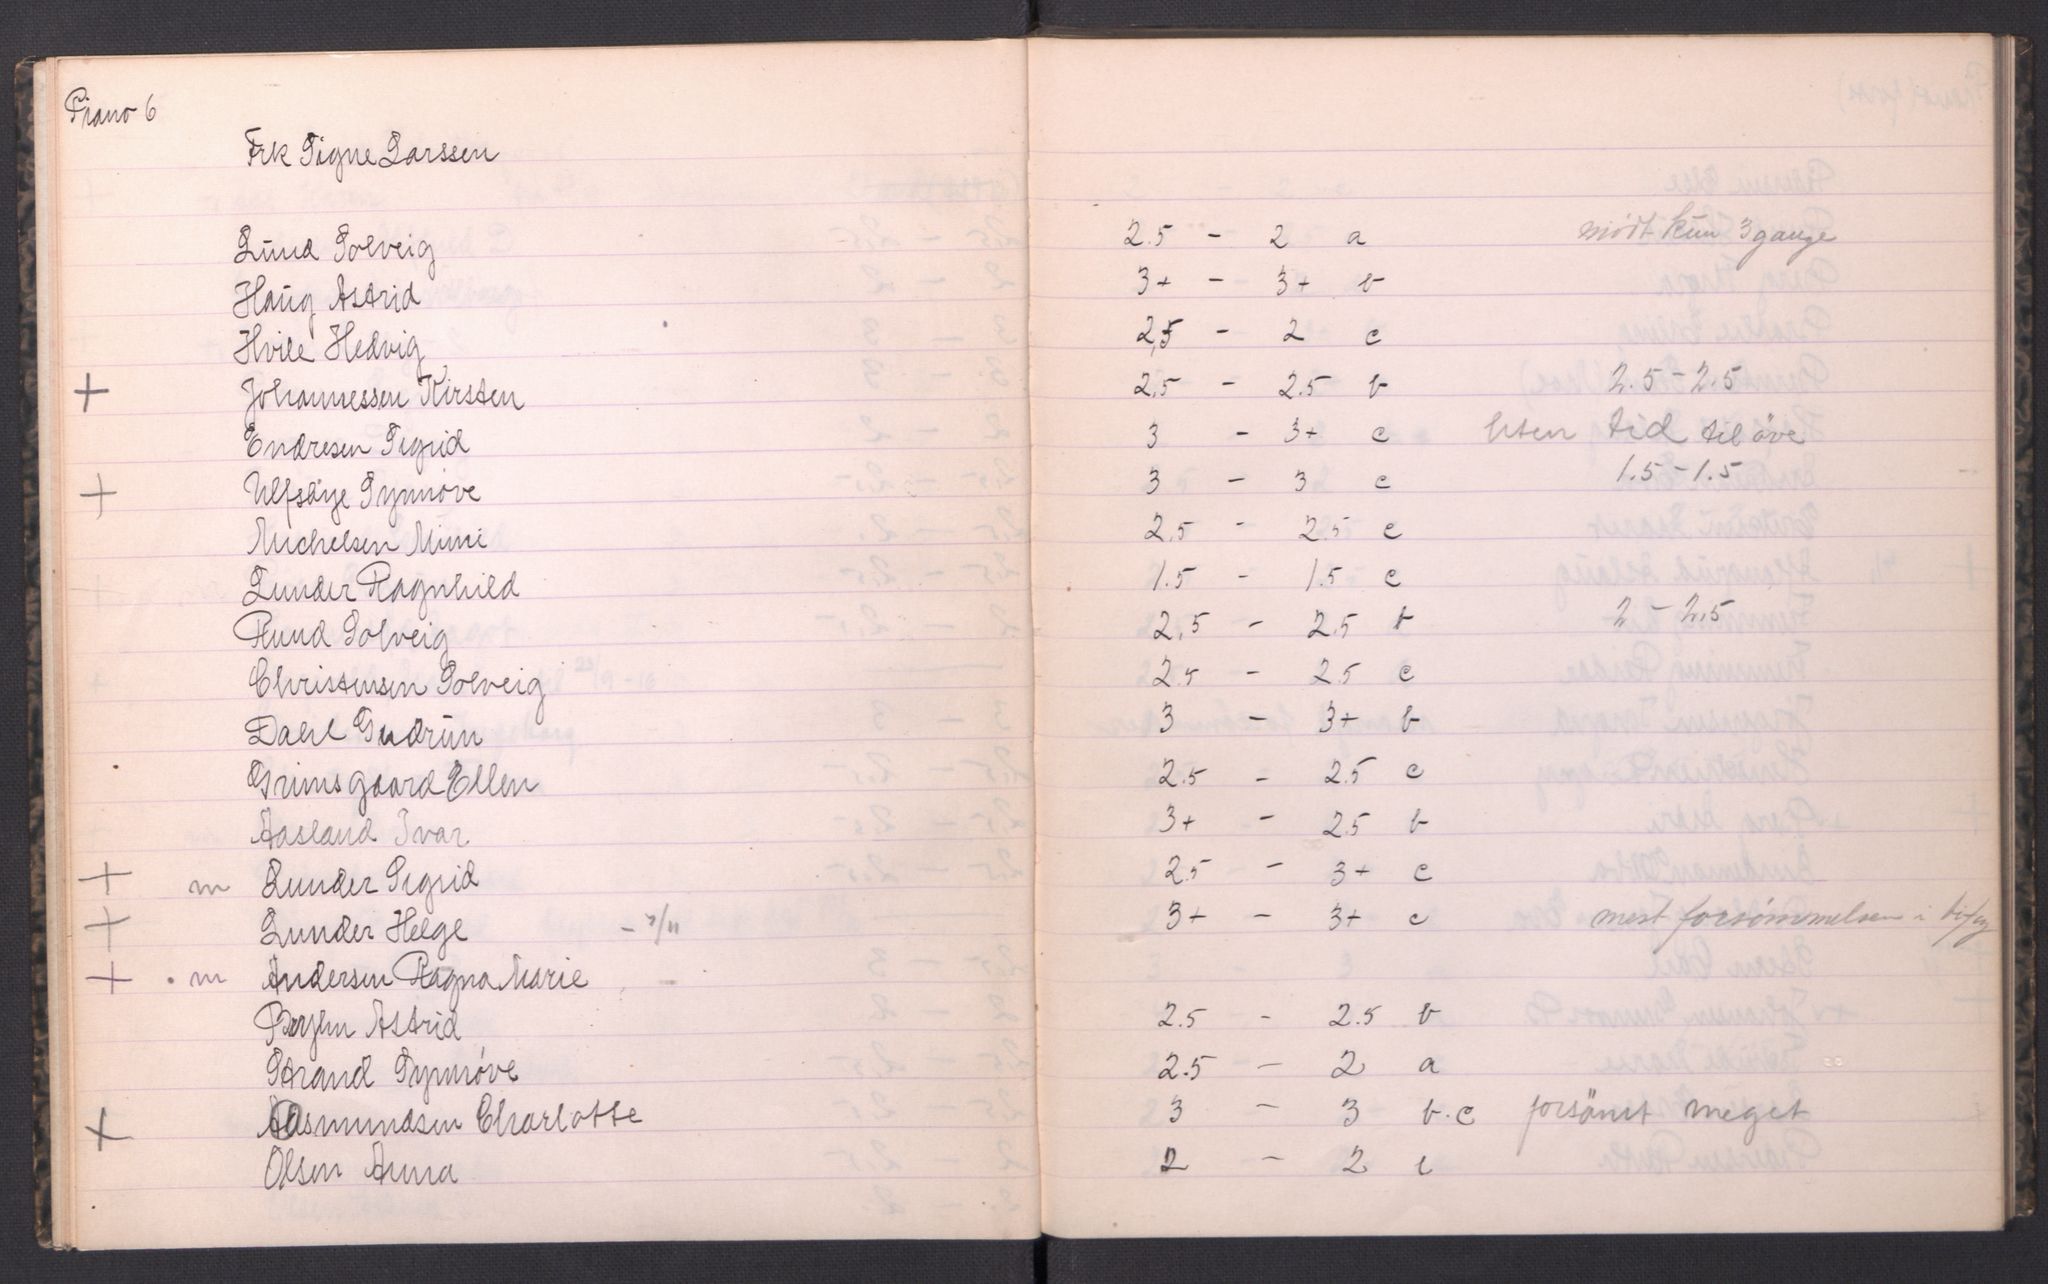 Piano 6
Frk Signe Larssen
Lund Solveig 2.5 - 2 a mødt kun 3 gange
Haug Astrid 3+ - 3+ b
Hvile Hedvig 2,5 - 2 c
+ Johannessen Kirsten 2,5 - 2.5 b 2.5 - 2.5
Endresen Sigrid 3 - 3+ c liten tid til øve
+ Ulfsbye Synnøve 3 - 3 c 1.5 - 1.5
Michelsen Mimi 2,5 - 2.5 c
Lunder Ragnhild 1.5 - 1.5 c
Ruud Solveig 2,5 - 2.5 b 2 - 2.5
Christensen Solveig 2.5 - 2.5 c
Dahl Gudrun 3 - 3+ b
Grimsgaard Ellen 2.5 - 2.5 c
Aasland Ivar 3+ - 2.5 b
+ m Lunder Sigrid 2.5 - 3+ c
+ Lunder Helge - 7/11 3+ - 3+ c mest forsømmelsen i bifag
+ . m Andersen Ragna Marie
Astrid 2.5 - 2.5 b
Strand Synnøve 2.5 - 2 a
+ Aasmundsen Charlotte 3 - 3 b.c forsömt meget
Olsen Anna 2 - 2 c